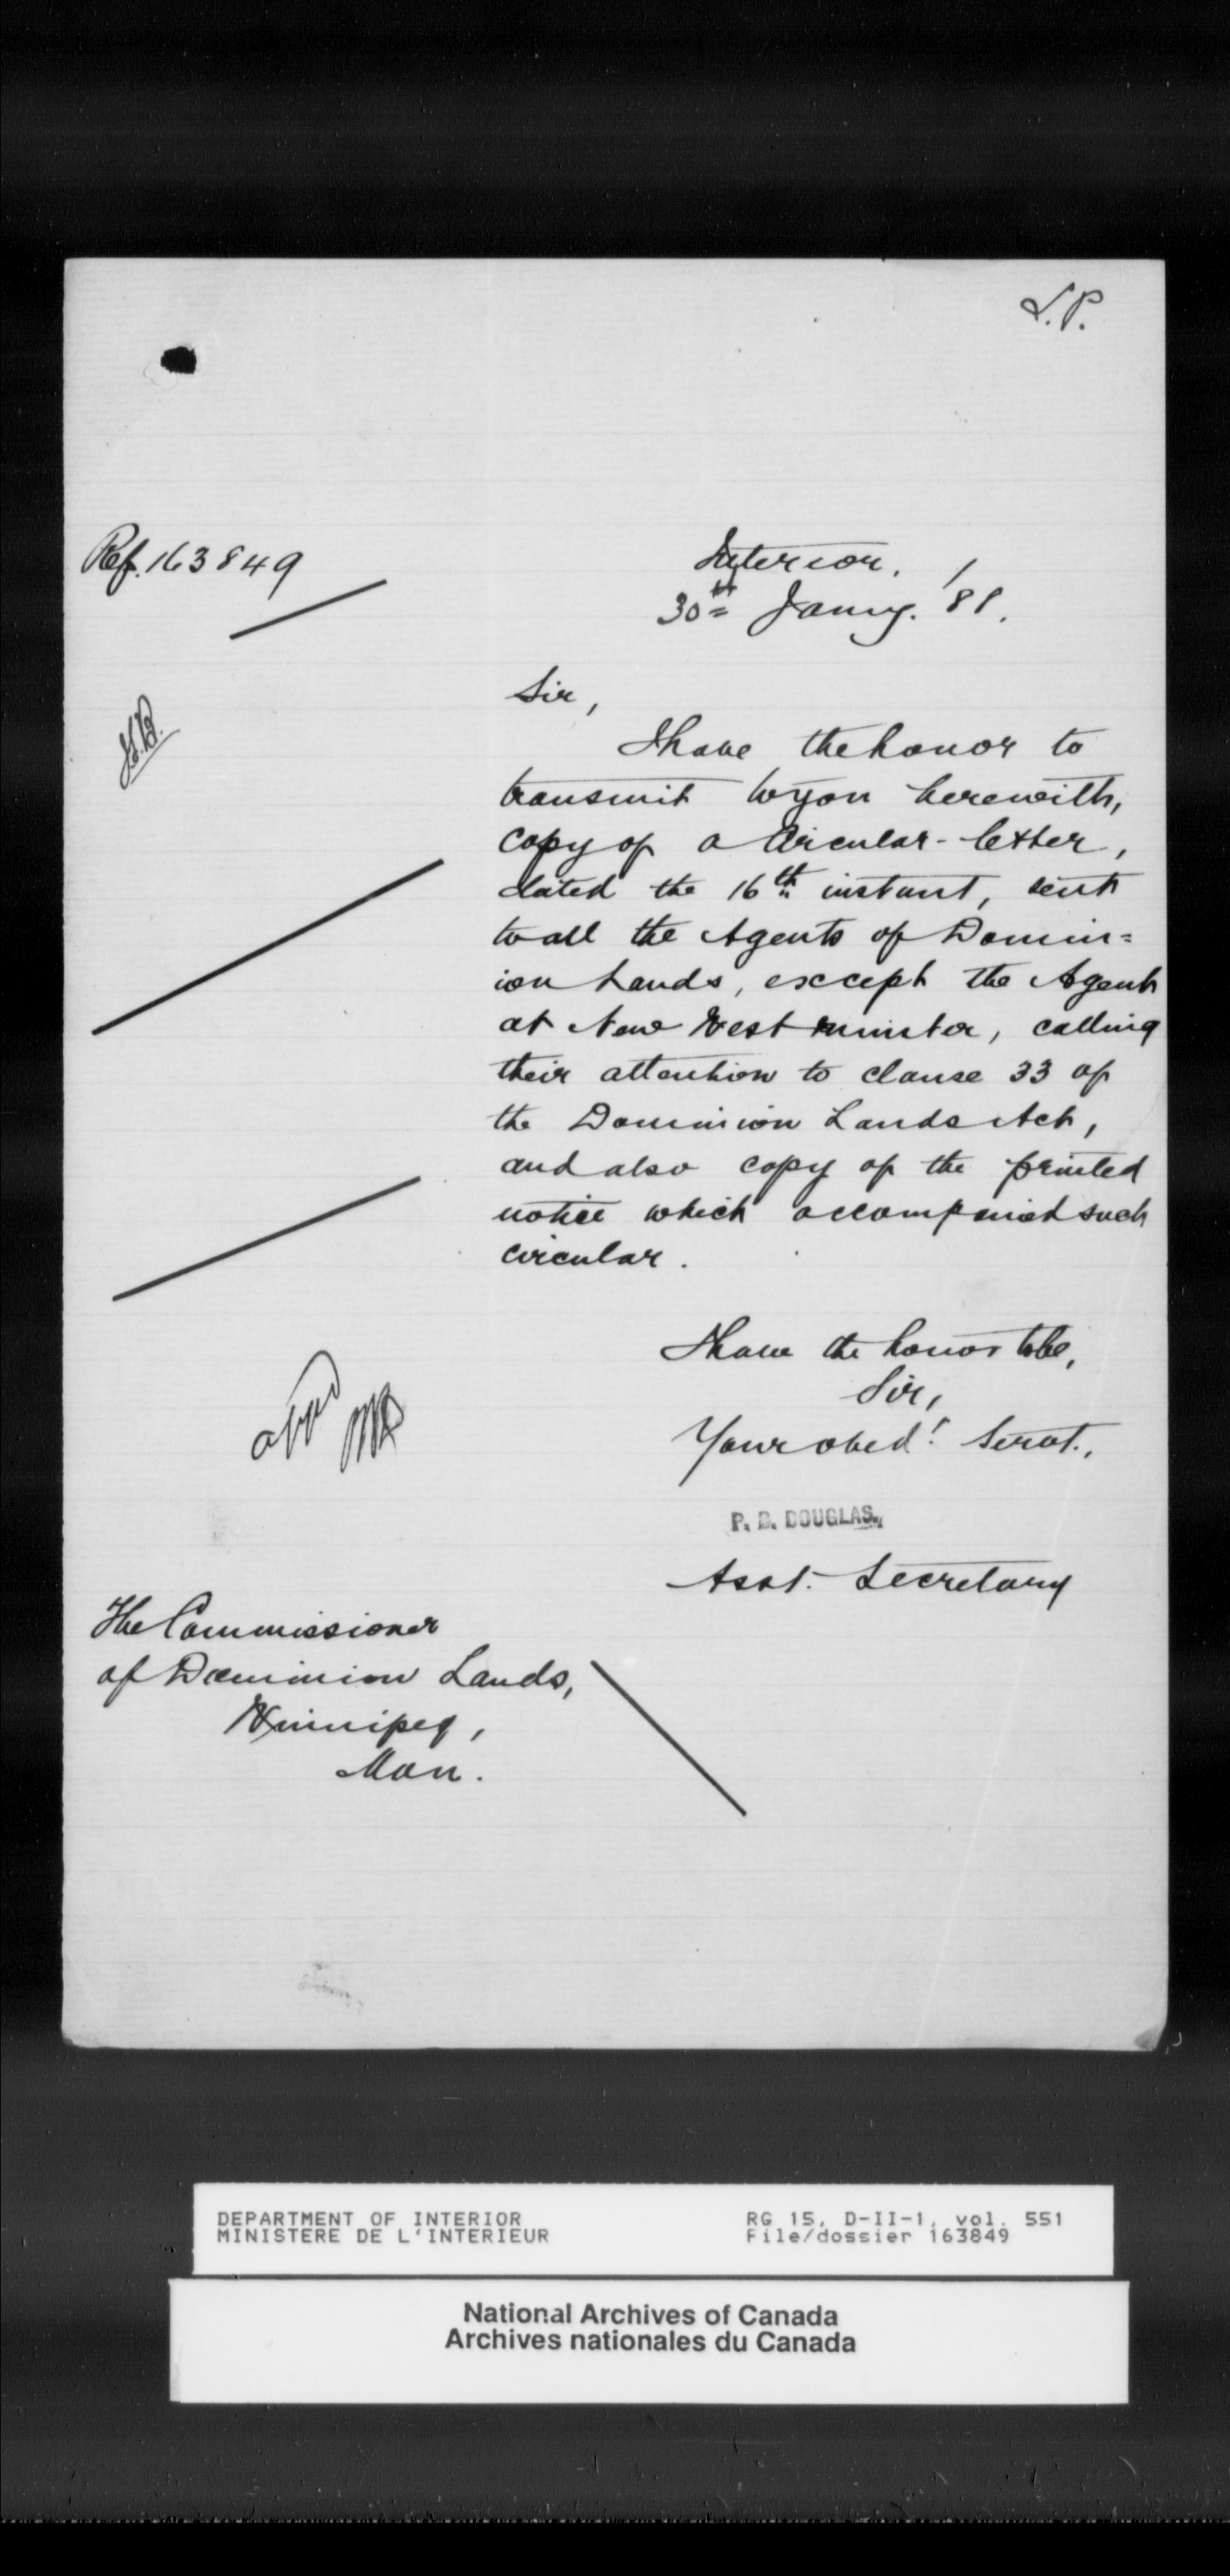 L.P.
Ref. 163849
Interior,
30th Jany. '88.
Sir,
I have the honor to
transmit to you herewith,
copy of a Circular-letter,
dated the 16th instant, sent
to all the Agents of Domin=
ion Lands, except the Agent
at New Westminster, calling
their attention to clause 33 of
the Dominion Lands Act,
and also copy of the printed
notice which accompanied such
circular.
I have the honor to be,
Sir,
Your obedt. Servt.,
P. B. DOUGLAS.,
Asst. Secretary
The Commissioner
of Dominion Lands,
Winnipeg,
Man.
DEPARTMENT OF INTERIOR
MINISTERE DE L'INTERIEUR
RG 15, D-II-1, vol. 551
File/dossier 163849
National Archives of Canada
Archives nationales du Canada